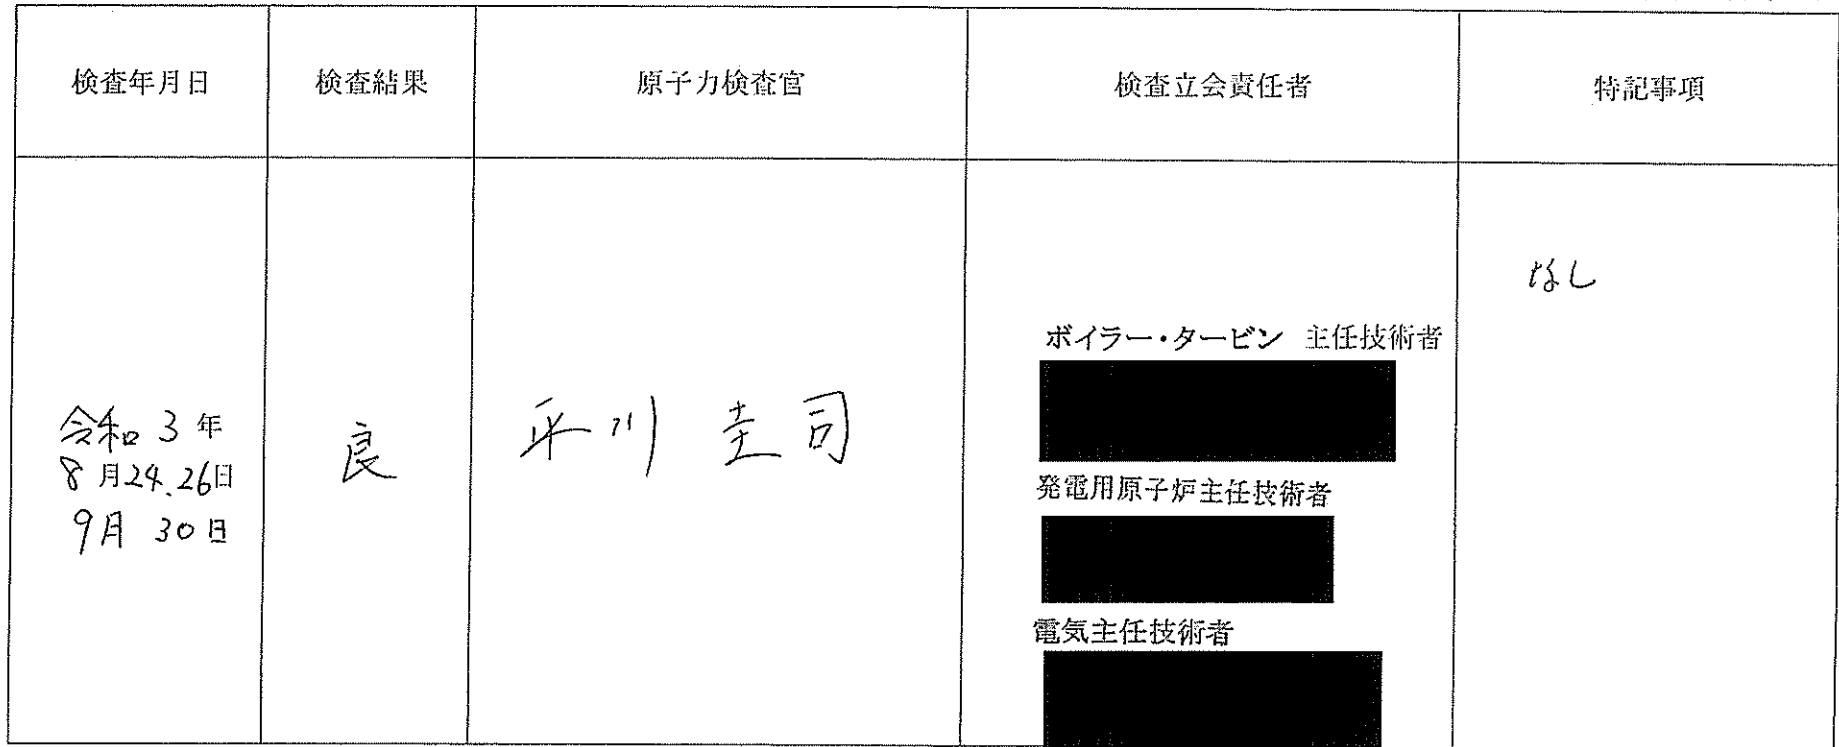 検査年月日 検査結果 原子力検査官 検査立会責任者 特記事項
令和3年
8月24.26日
9月 30日
良
平川 圭司
ボイラー・タービン 主任技術者
発電用原子炉主任技術者
電気主任技術者
なし